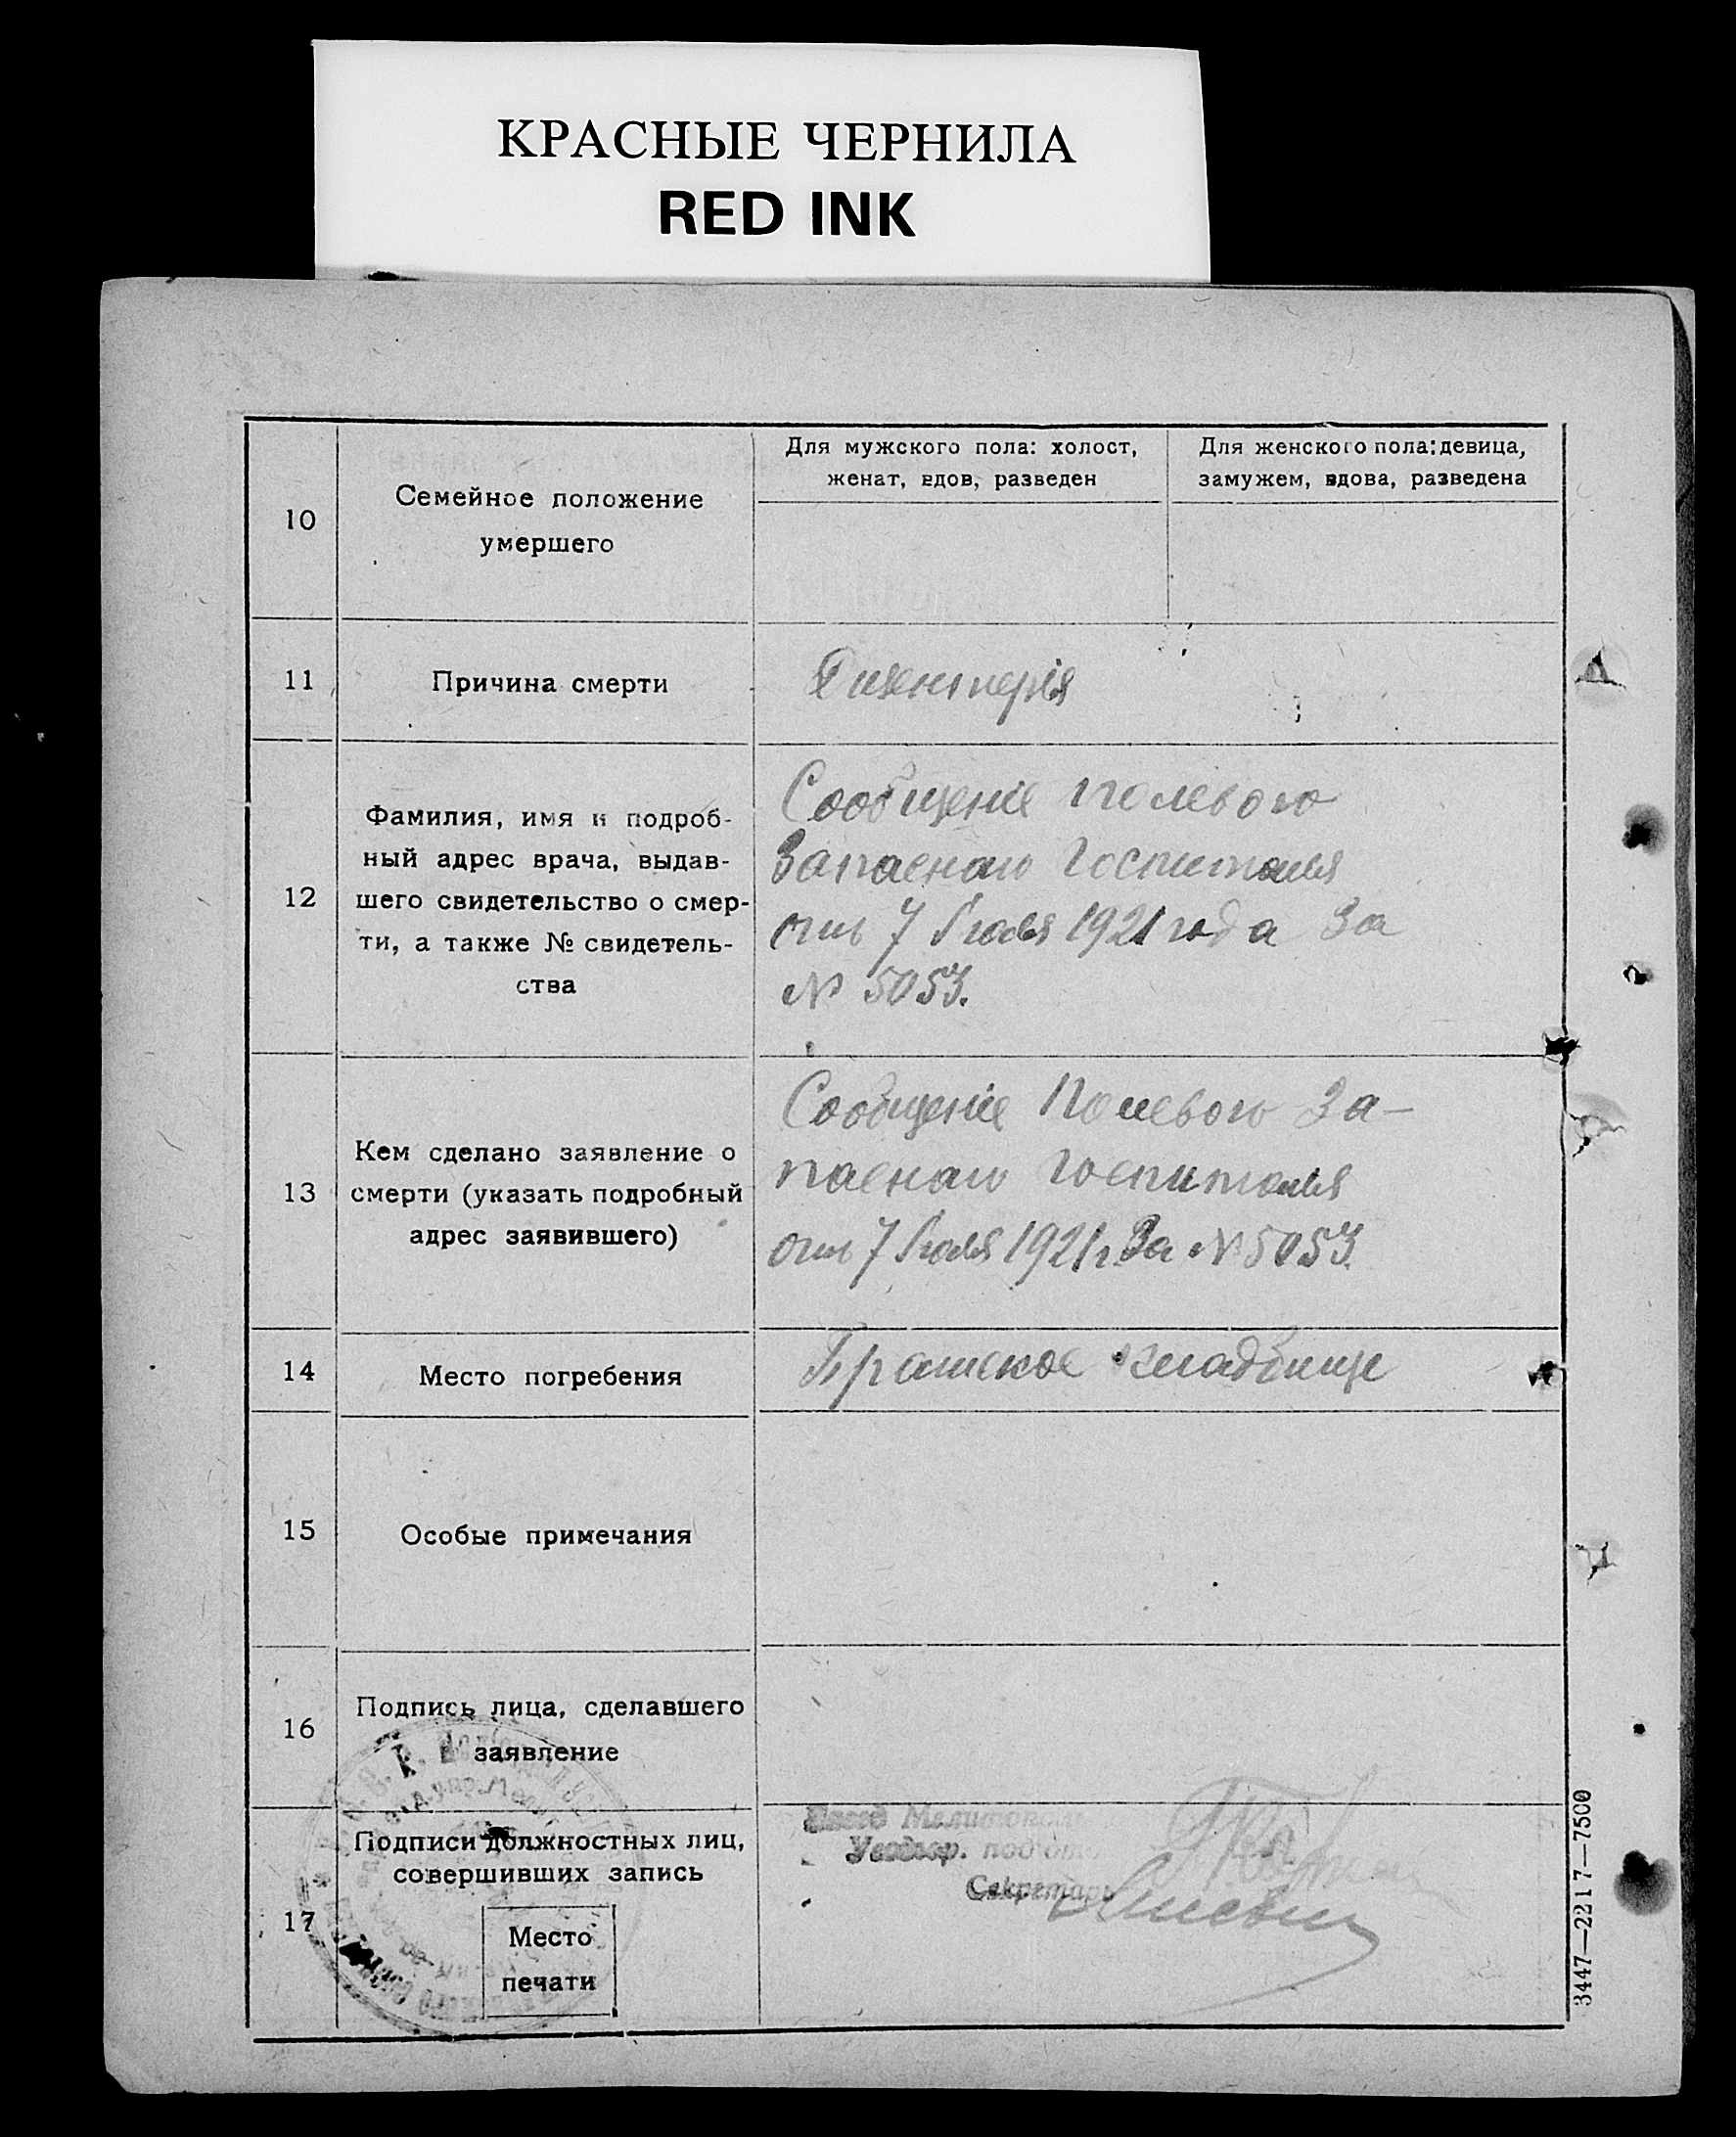 КРАСНЫЕ ЧЕРНИЛА
RED INK
10
Семейное положение
умершего
Для мужского пола: холост,
женат, вдов, разведен
Для женского пола: девица,
замужем, вдова, разведена
11
Причина смерти
Дизентерія
12
Фамилия, имя и подроб-
ный адрес врача, выдав-
шего свидетельство о смер-
ти, а также № свидетель-
ства
Сообщеніе полевого
Запаснаго Госпиталя
отъ 7 Іюля 1921 года За
№ 5053.
13
Кем сделано заявление о
смерти (указать подробный
адрес заявившего)
Сообщеніе Полевого За-
паснаго Госпиталя
отъ 7 Іюля 1921 г. За № 5053.
14
Место погребения
Братское кладбище
15
Особые примечания
16
Подпись лица, сделавшего
заявление
17
Подписи должностных лиц,
совершивших запись
Место
печати
Секретарь
3447—2217—7500